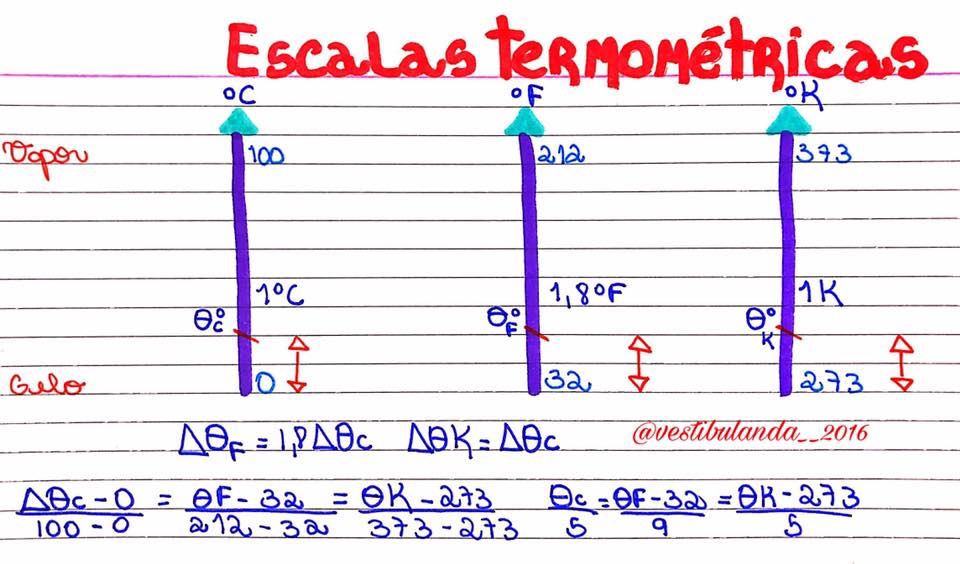 Escalas termométricas
°C °F °K
Vapor 100 212 373
1°C 1,8°F 1K
θ°c θ°F θ°K
Gelo 0 32 273
ΔθF = 1,8Δθc ΔθK = Δθc @vestibulanda__2016
Δθc - 0 / 100 - 0 = θF - 32 / 212 - 32 = θK - 273 / 373 - 273 θc / 5 = θF - 32 / 9 = θK - 273 / 5